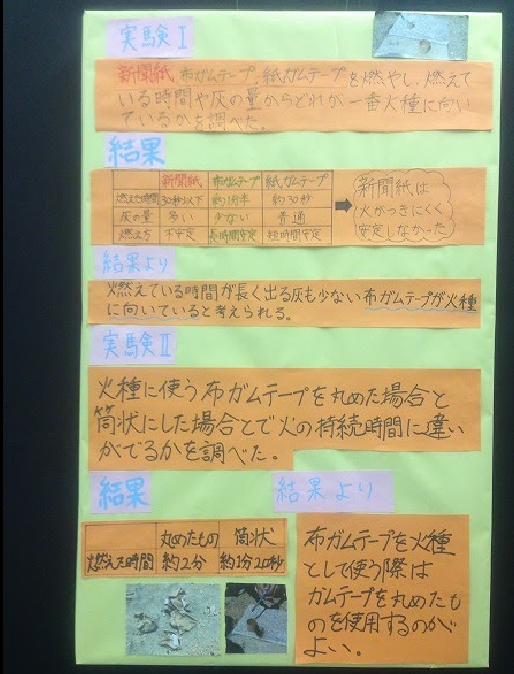 実験Ⅰ
新聞紙、布ガムテープ、紙ガムテープを燃やし、燃えて
いる時間や灰の量からどれが一番火種に向い
ているかを調べた。
結果
新聞紙 布ガムテープ 紙ガムテープ
燃えた時間 30秒以下 約1分半 約30秒
灰の量 多い 少ない 普通
燃え方 不安定 長時間安定 短時間安定
新聞紙は
火がつきにくく
安定しなかった
結果より
燃えている時間が長く出る灰も少ない布ガムテープが火種
に向いていると考えられる。
実験Ⅱ
火種に使う布ガムテープを丸めた場合と
筒状にした場合とで火の持続時間に違い
がでるかを調べた。
結果
丸めたもの 筒状
燃えた時間 約2分 約1分20秒
結果より
布ガムテープを火種
として使う際は
ガムテープを丸めたも
のを使用するのが
よい。